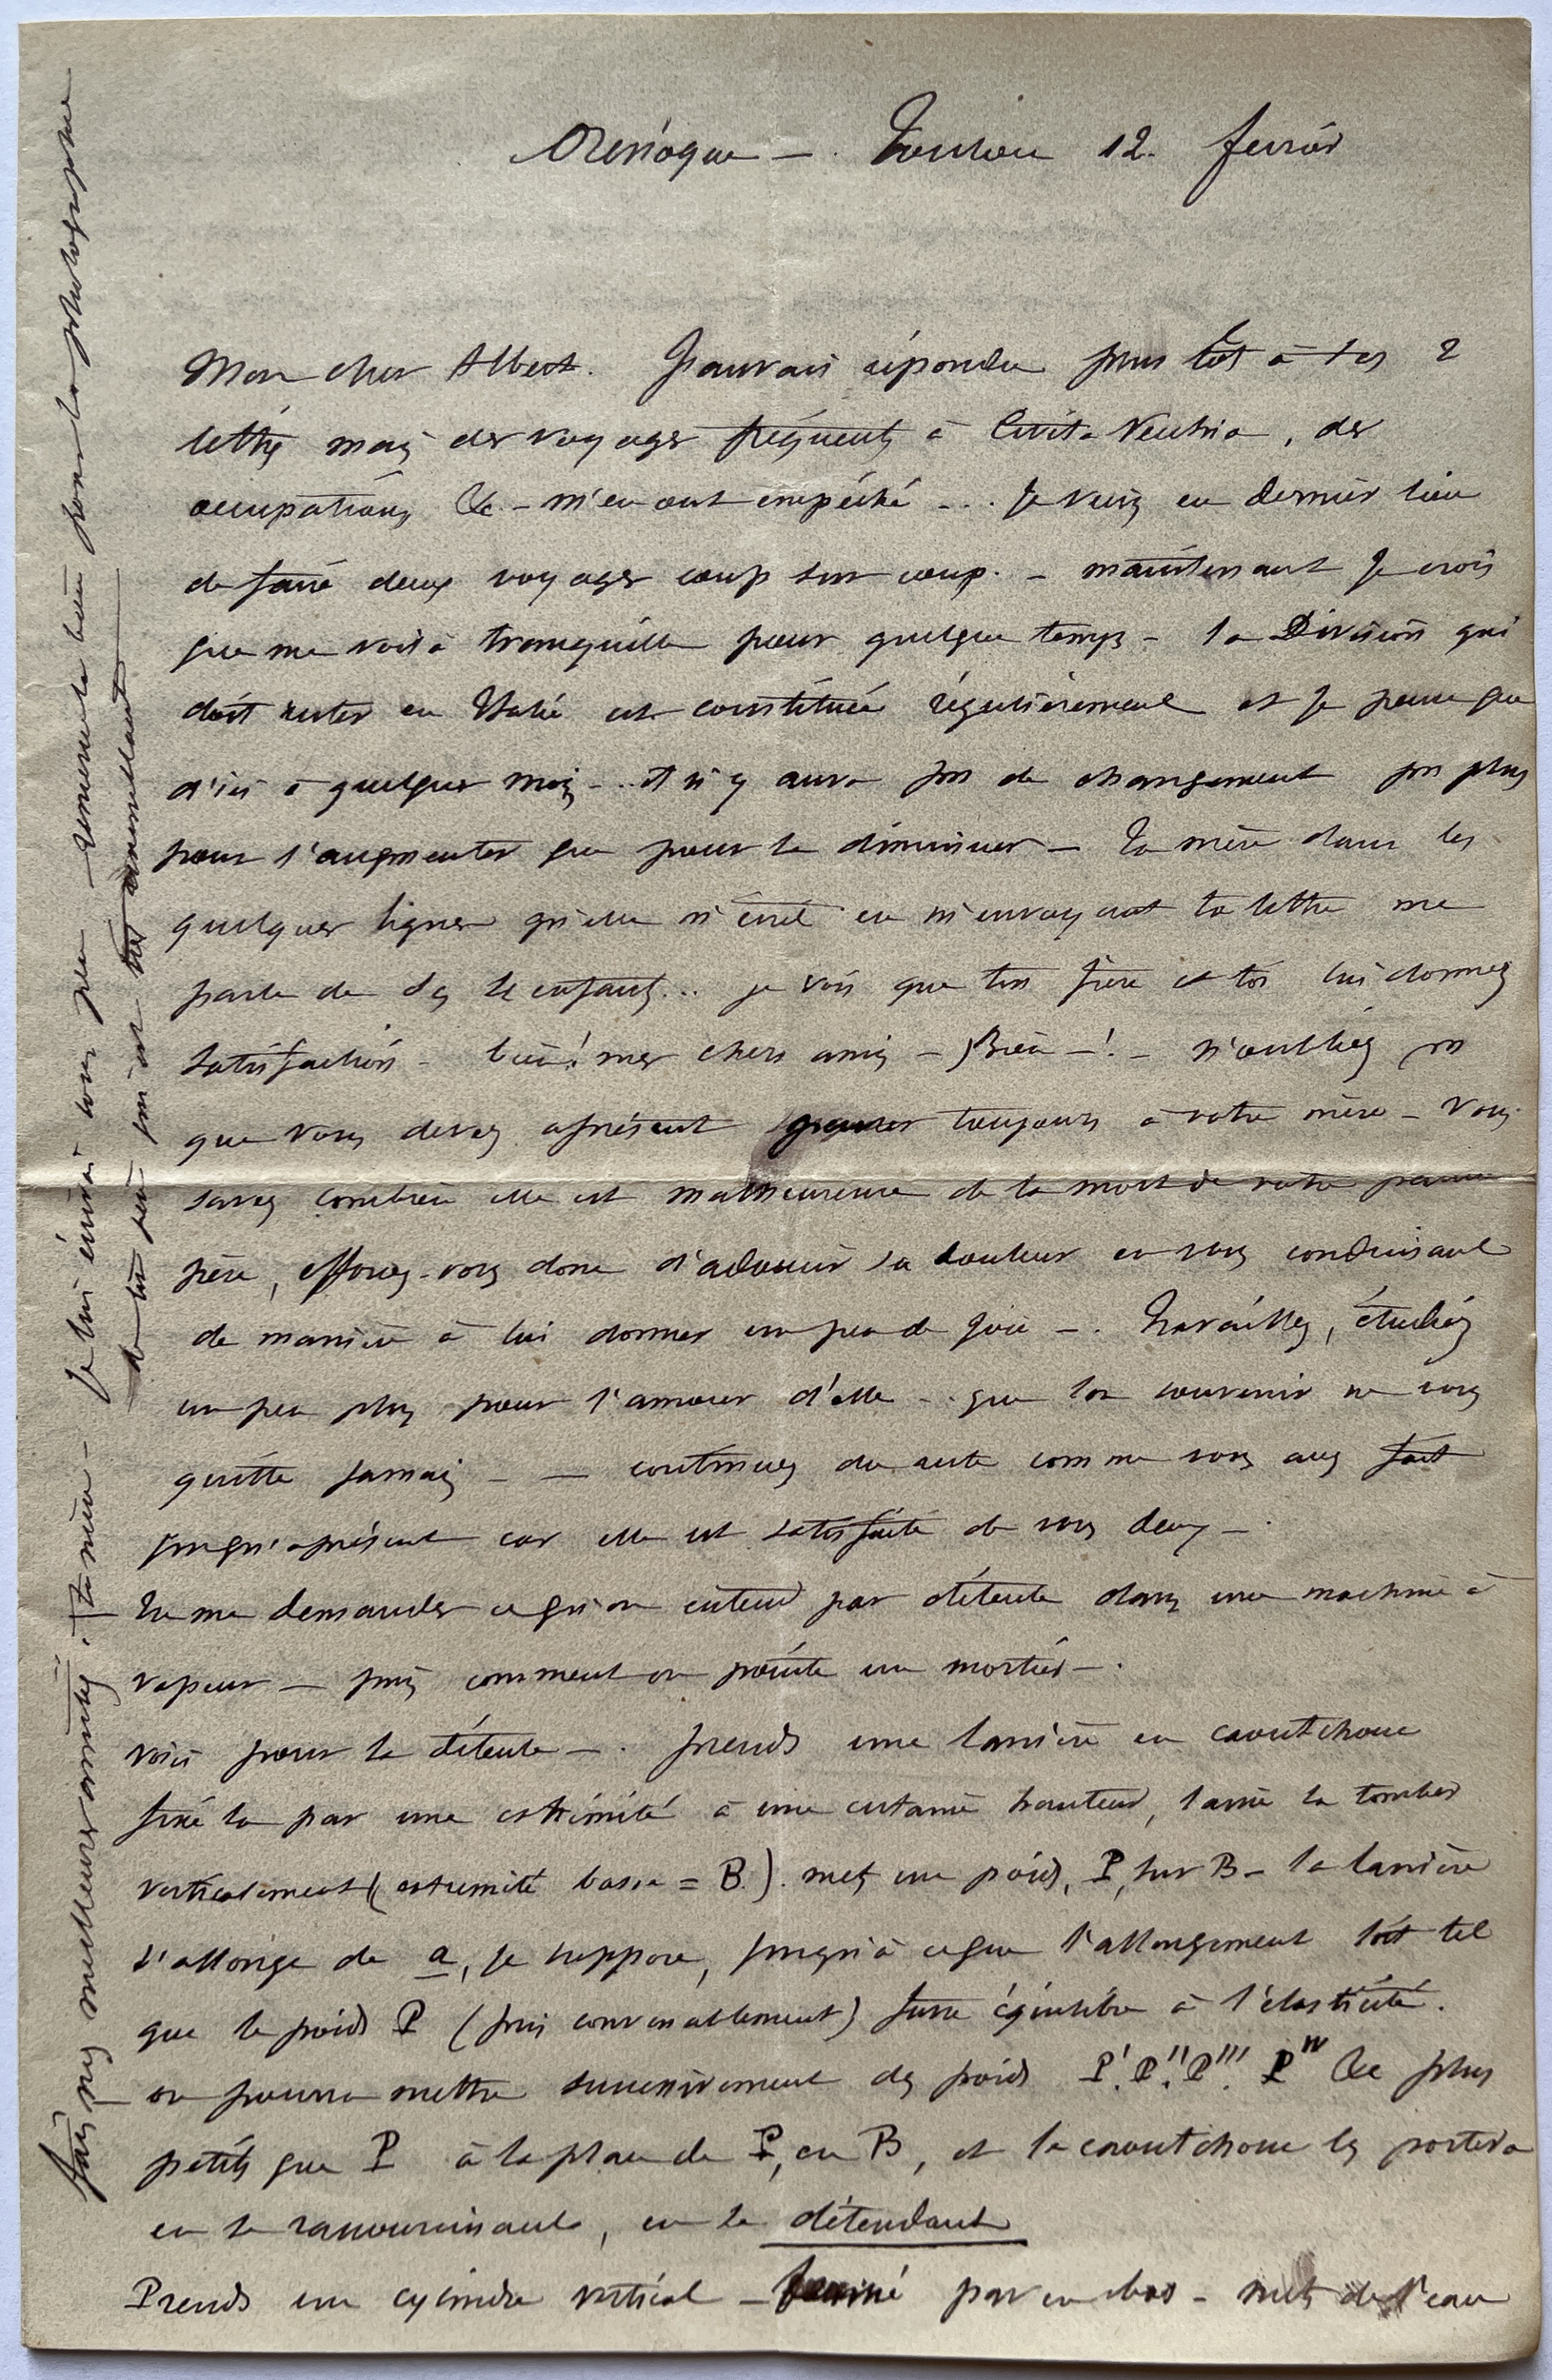 Orénoque — Toulon 12 février
Mon cher Albert. J'aurais répondu plus tôt à tes 2
lettres mais des voyages fréquents à Civita Vecchia, des
occupations &c - m'en ont empêché - .. Je viens en dernier lieu
de faire deux voyages coup sur coup. - maintenant je crois
que me voilà tranquille pour quelque temps - la Division qui
doit rester en Italie est constituée régulièrement et je pense que
d'ici à quelques mois - .. il n'y aura pas de changement pas plus
pour l'augmenter que pour la diminuer — Ta mère dans les
quelques lignes qu'elle m'écrit en m'envoyant ta lettre me
parle de ses enfants... je vois que ton frère et toi lui donnez
satisfaction - bien! mes chers amis - Bien - ! - n'oubliez pas
que vous devez àprésent penser toujours à votre mère - Vous
savez combien elle est malheureuse de la mort de votre pauvre
père, efforcez-vous donc d'adoucir sa douleur en vous conduisant
de manière à lui donner un peu de joie - . Travaillez, étudiez
un peu plus pour l'amour d'elle - . que son souvenir ne vous
quitte jamais - — continuez du reste comme vous avez fait
jusqu'àprésent car elle est satisfaite de vous deux - .
Tu me demandes ce qu'on entend par détente dans une machine à
vapeur — puis comment on pointe un mortier - .
voici pour la détente - . prends une lanière en caoutchouc
fixe la par une extrémité à une certaine hauteur, laisse la tomber
verticalement (extrémité basse = B.). mets un poids, P, sur B - la lanière
s'allonge de a, je suppose, jusqu'à ceque l'allongement soit tel
que le poids P (pris convenablement) fasse équilibre à l'élasticité.
on pourra mettre successivement des poids P'. P''. P'''. P'''' &c plus
petits que P à la place de P, en B, et le caoutchouc les portera
en se raccourcissant, en se détendant
Prends un cylindre vertical - fermé par en bas - mets de l'eau
fais mes meilleures amitiés à ta mère - Je lui écrirai sous peu - remercie la bien pour la photographie
de ton père qui est très ressemblante